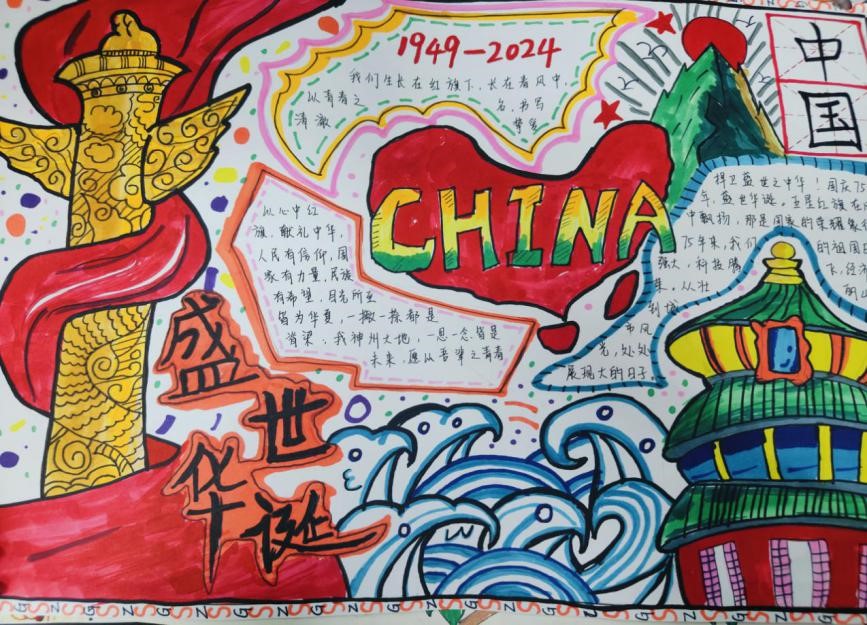 1949-2024
我们生长在红旗下,长在春风中
以青春之名,书写
清澈挚爱
中
国
CHINA
以心中红
旗,献礼中华,
人民有信仰,国
家有力量,民族
有希望,目光所至
皆为华夏,一撇一捺都是
脊梁,我神州大地,一思一念皆是
未来,愿以吾辈之青春
捍卫盛世之中华!国庆75
年,盛世华诞。五星红旗在风
中飘扬,那是国家的荣耀象
75年来,我们的祖国日
强大,科技腾飞,经济
从壮
到城
市风
光,处处
展现大的日子
盛
世
华
诞